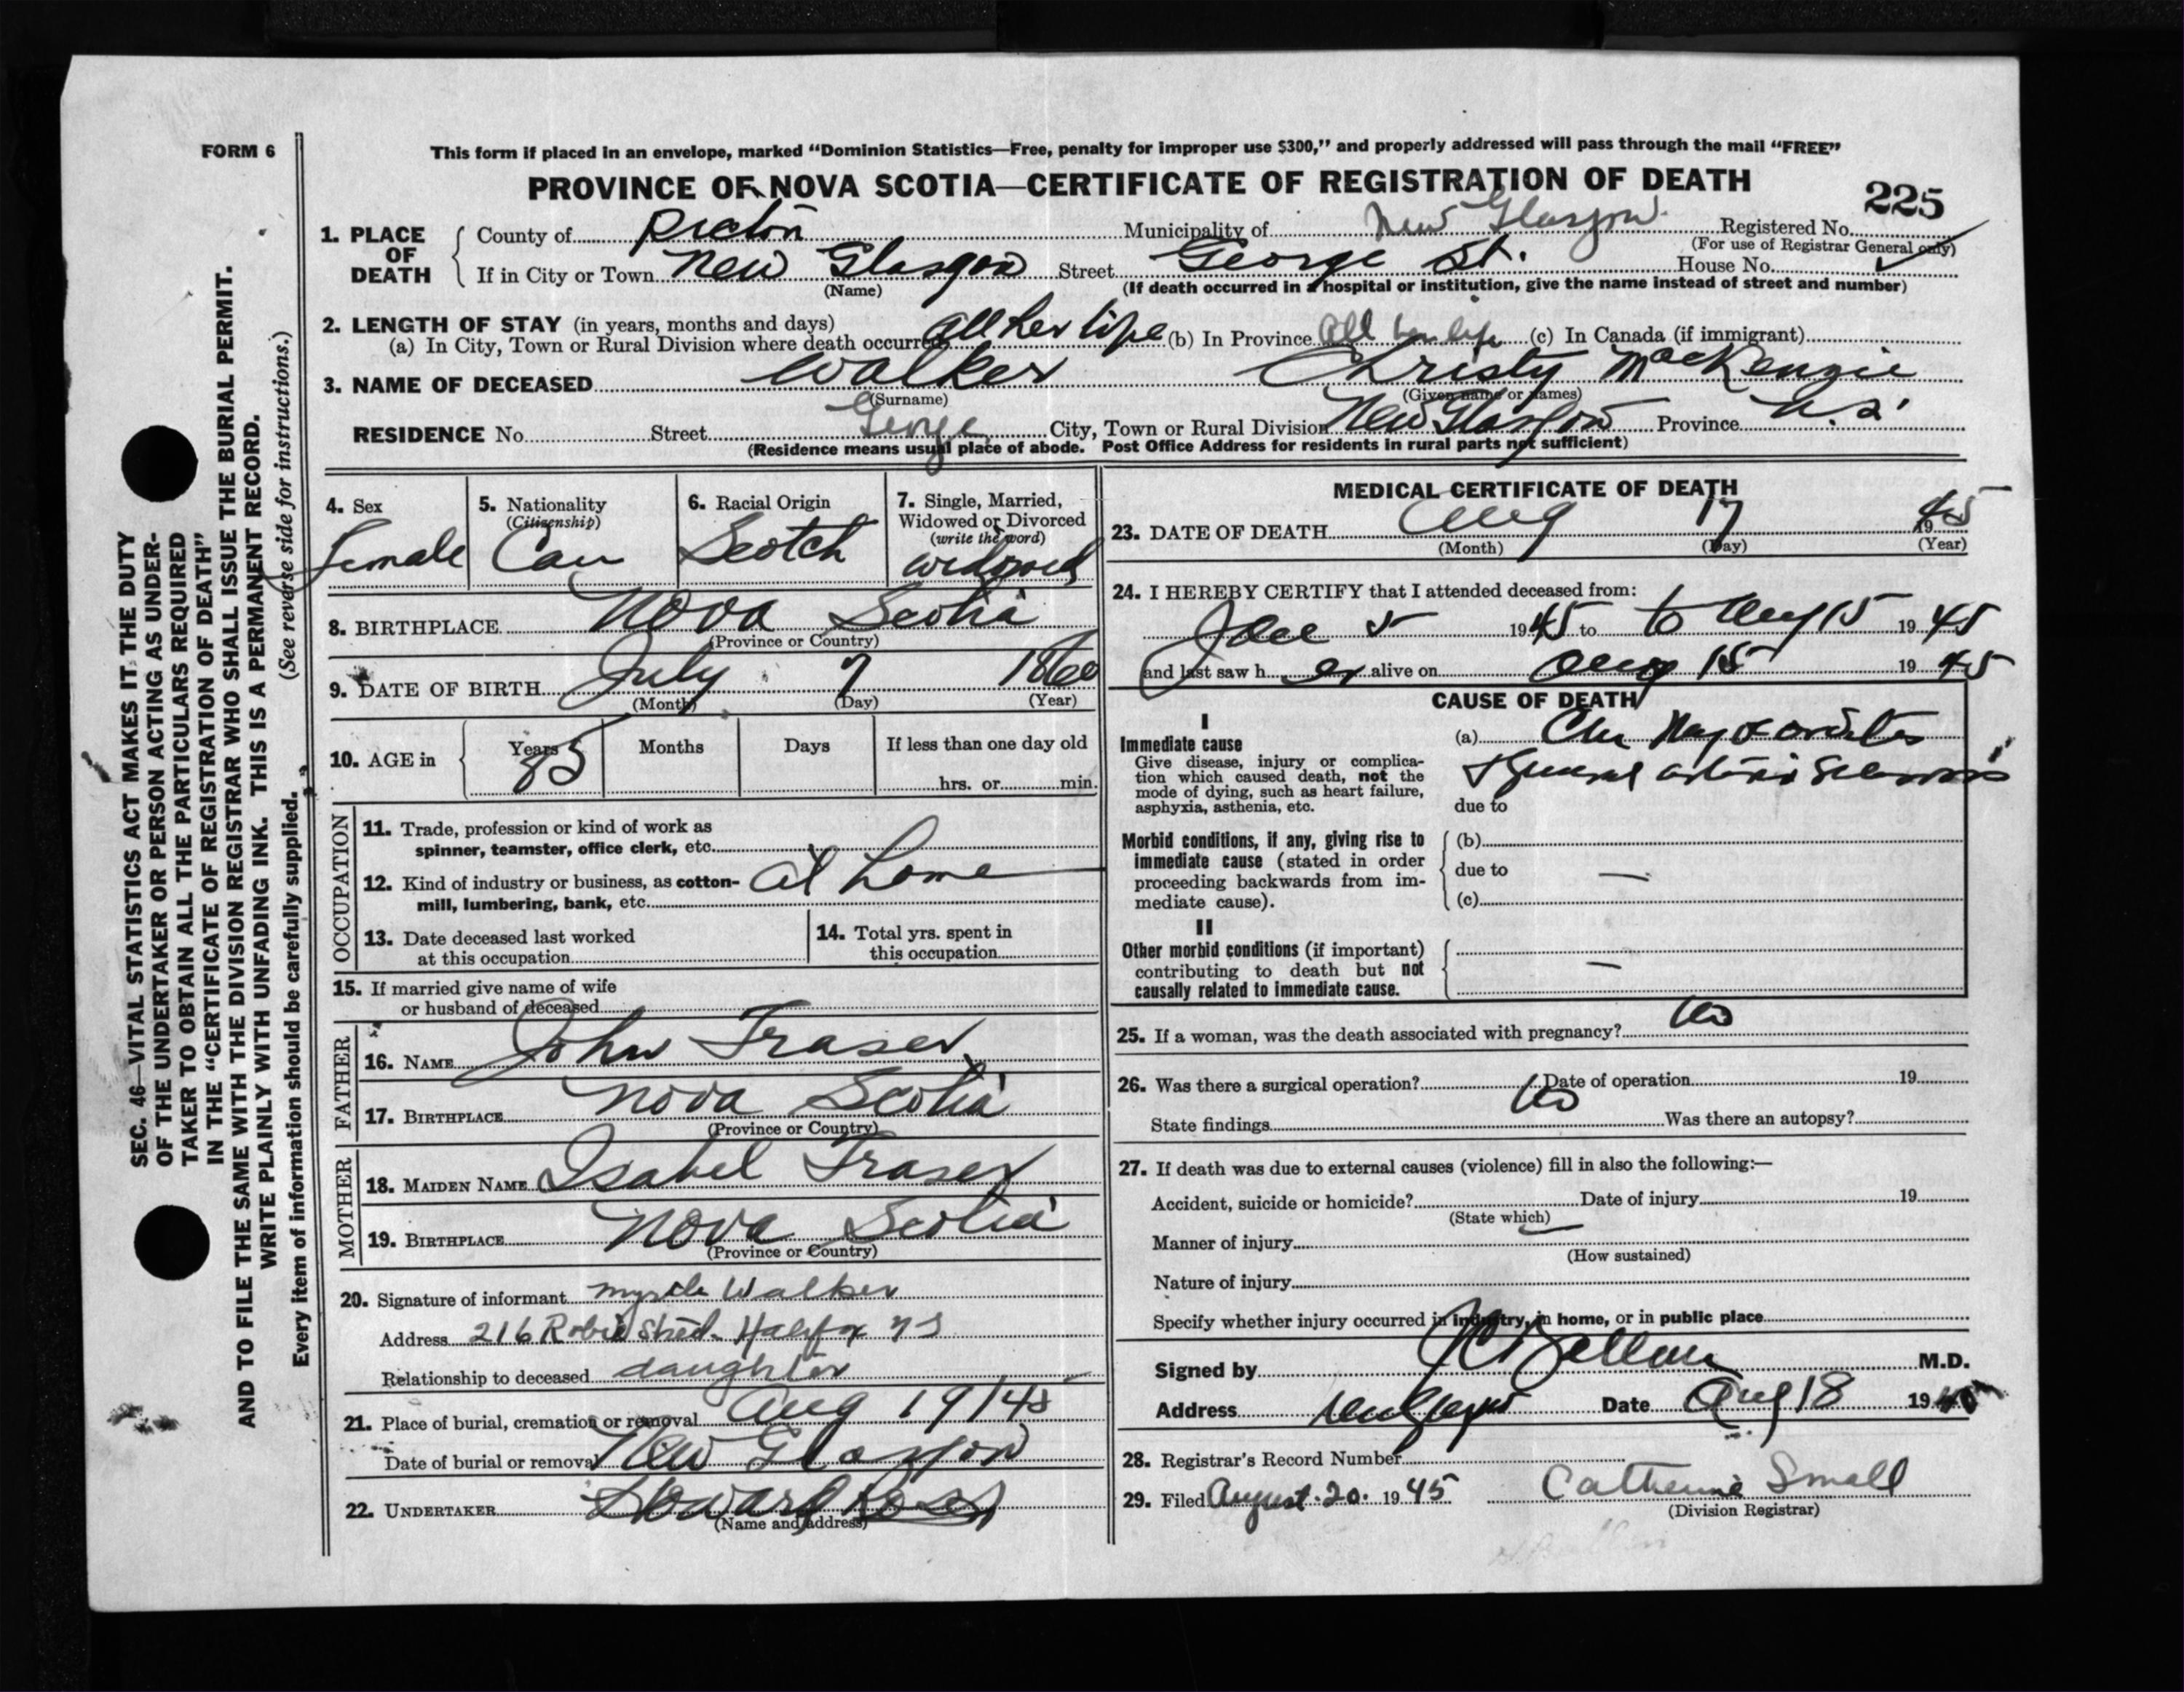 FORM 6
This form if placed in an envelope, marked “Dominion Statistics—Free, penalty for improper use $300,” and properly addressed will pass through the mail “FREE”
PROVINCE OF NOVA SCOTIA—CERTIFICATE OF REGISTRATION OF DEATH
225
1. PLACE OF DEATH
County of Pictou Municipality of New Glasgow Registered No.
(For use of Registrar General only)
If in City or Town New Glasgow Street George St. House No.
(Name) (If death occurred in a hospital or institution, give the name instead of street and number)
2. LENGTH OF STAY (in years, months and days)
(a) In City, Town or Rural Division where death occurred all her life (b) In Province All her life (c) In Canada (if immigrant)
3. NAME OF DECEASED Walker Christy MacKenzie
(Surname) (Given name or names)
RESIDENCE No. Street George City, Town or Rural Division New Glasgow Province N.S.
(Residence means usual place of abode. Post Office Address for residents in rural parts not sufficient)
4. Sex
Female
5. Nationality
(Citizenship)
Can
6. Racial Origin
Scotch
7. Single, Married,
Widowed or Divorced
(write the word)
widowed
8. BIRTHPLACE Nova Scotia
(Province or Country)
9. DATE OF BIRTH July 7 1860
(Month) (Day) (Year)
10. AGE in Years 85 Months Days If less than one day old
hrs. or min.
OCCUPATION
11. Trade, profession or kind of work as
spinner, teamster, office clerk, etc.
12. Kind of industry or business, as cotton- at home
mill, lumbering, bank, etc.
13. Date deceased last worked
at this occupation
14. Total yrs. spent in
this occupation
15. If married give name of wife
or husband of deceased
FATHER
16. NAME John Fraser
17. BIRTHPLACE Nova Scotia
(Province or Country)
MOTHER
18. MAIDEN NAME Isabel Fraser
19. BIRTHPLACE Nova Scotia
(Province or Country)
20. Signature of informant Myrtle Walker
Address 216 Robie Street Halifax N S
Relationship to deceased daughter
21. Place of burial, cremation or removal Aug 19/45
Date of burial or removal New Glasgow
22. UNDERTAKER Howard
(Name and address)
MEDICAL CERTIFICATE OF DEATH
23. DATE OF DEATH Aug 17 1945
(Month) (Day) (Year)
24. I HEREBY CERTIFY that I attended deceased from:
5 1945 to to Aug 15 1945
and last saw her alive on Aug 15 1945
CAUSE OF DEATH
I
Immediate cause
Give disease, injury or complica-
tion which caused death, not the
mode of dying, such as heart failure,
asphyxia, asthenia, etc.
(a) Chr Myocarditis
General arterio Sclerosis
due to
Morbid conditions, if any, giving rise to
immediate cause (stated in order
proceeding backwards from im-
mediate cause).
(b)
due to —
(c)
II
Other morbid conditions (if important)
contributing to death but not
causally related to immediate cause.
—
25. If a woman, was the death associated with pregnancy? No
26. Was there a surgical operation? No Date of operation 19
State findings Was there an autopsy?
27. If death was due to external causes (violence) fill in also the following:—
Accident, suicide or homicide? Date of injury 19
(State which)
Manner of injury
(How sustained)
Nature of injury
Specify whether injury occurred in industry, in home, or in public place
Signed by M.D.
Address New Glasgow Date Aug 18 1945
28. Registrar's Record Number
29. Filed August 20. 1945 Catherine Small
(Division Registrar)
SEC. 46—VITAL STATISTICS ACT MAKES IT THE DUTY
OF THE UNDERTAKER OR PERSON ACTING AS UNDER-
TAKER TO OBTAIN ALL THE PARTICULARS REQUIRED
IN THE “CERTIFICATE OF REGISTRATION OF DEATH”
AND TO FILE THE SAME WITH THE DIVISION REGISTRAR WHO SHALL ISSUE THE BURIAL PERMIT.
WRITE PLAINLY WITH UNFADING INK. THIS IS A PERMANENT RECORD.
Every item of information should be carefully supplied. (See reverse side for instructions.)